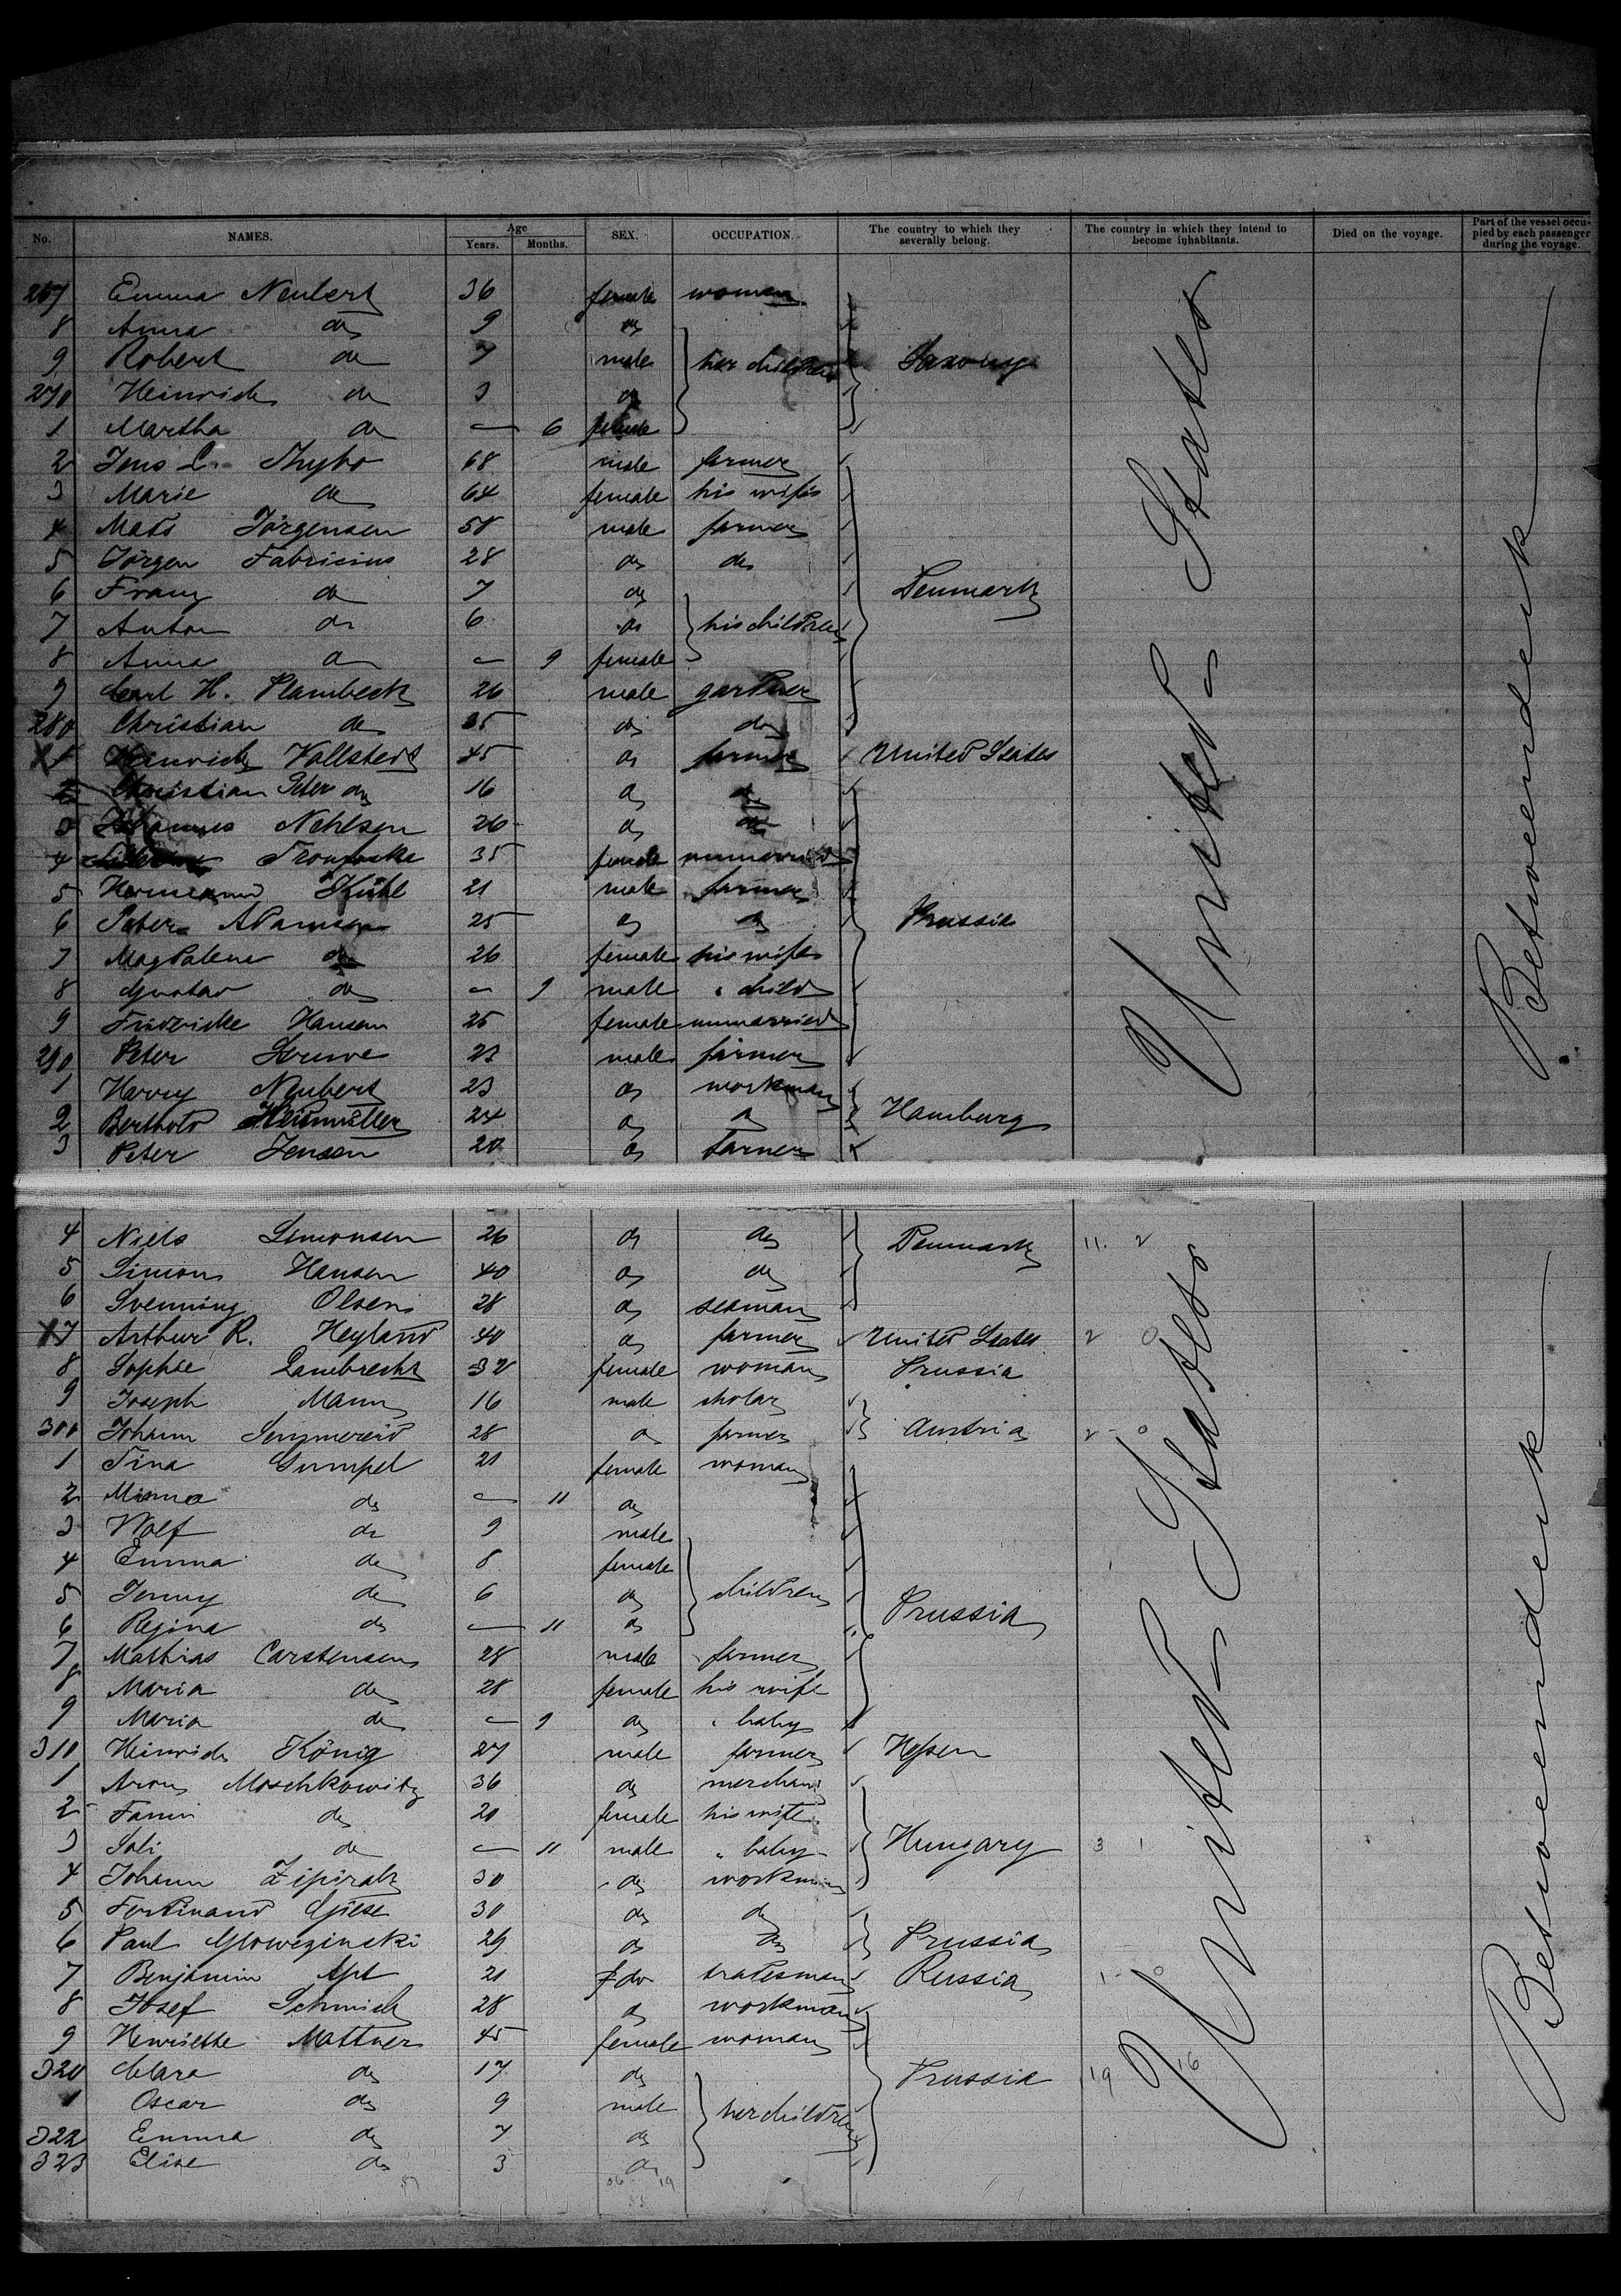 No. NAMES. Age Years. Months. SEX. OCCUPATION. The country to which they severally belong. The country in which they intend to become inhabitants. Died on the voyage. Part of the vessel occupied by each passenger during the voyage.
267 Emma Neubert 36 female woman
8 Anna do 9 do
9 Robert do 7 male her children Saxony
270 Heinrich do 3 do
1 Martha do — 6 female
2 Jens C. Thybo 68 male farmer
3 Marie do 64 female his wife
4 Mads Jörgensen 58 male farmer
5 Jörgen Fabricius 28 do do
6 Franz do 7 do Denmark
7 Anton do 6 do his children
8 Anna do — 9 female
9 Carl H. Plambeck 26 male gardner
280 Christian do 35 do do
X1 Heinrich Vollstedt 45 do farmer United States
2 Christian Peter do 16 do do
3 Johannes Nehlsen 26 do do
4 35 female unmarried
5 Hermann Kühl 21 male farmer
6 Peter Adamsen 25 do do Prussia
7 Magdalene do 26 female his wife
8 Gustav do — 9 male " child
9 Friedericke Hansen 25 female unmarried
290 Peter Struve 23 male farmer
1 Harry Neubert 23 do workman
2 Berthold 24 do do Hamburg
3 Peter Jensen 20 do farmer
4 Niels Simonsen 26 do do Denmark 11. 2
5 Simon Hansen 40 do do
6 Svenning Olsen 28 do seaman
X7 Arthur R. Heyland 40 do farmer United States 2 0
8 Sophie Lambrecht 32 female woman Prussia
9 Joseph Mann 16 male scholar
300 Johann 28 do farmer Austria 2 - 0
1 Tina Gumpel 21 female woman
2 Minna do — 11 do
3 Wolf do 9 male
4 Emma do 8 female
5 Jenny do 6 do children Prussia
6 Regina do — 11 do
7 Mathias Carstensen 28 male farmer
8 Maria do 28 female his wife
9 Maria do — 9 do " baby
310 Heinrich König 27 male farmer Hessen
1 Aron Moschkowitz 36 do merchant
2 Fanni do 20 female his wife
3 Sali do — 11 male " baby Hungary 3 1
4 Johann 30 do workman
5 Ferdinand Giese 30 do do
6 Paul Gloweginski 29 do do Prussia
7 Benjamin Apt 21 do tradesman Russia 1 - 0
8 Josef Schmich 28 do workman
9 Henriette Mattner 45 female woman
320 Clara do 17 do Prussia 19 16
1 Oscar do 9 male her children
322 Emma do 7 do
323 Elise do 3 do
United States
Betweendeck
United States
Betweendeck